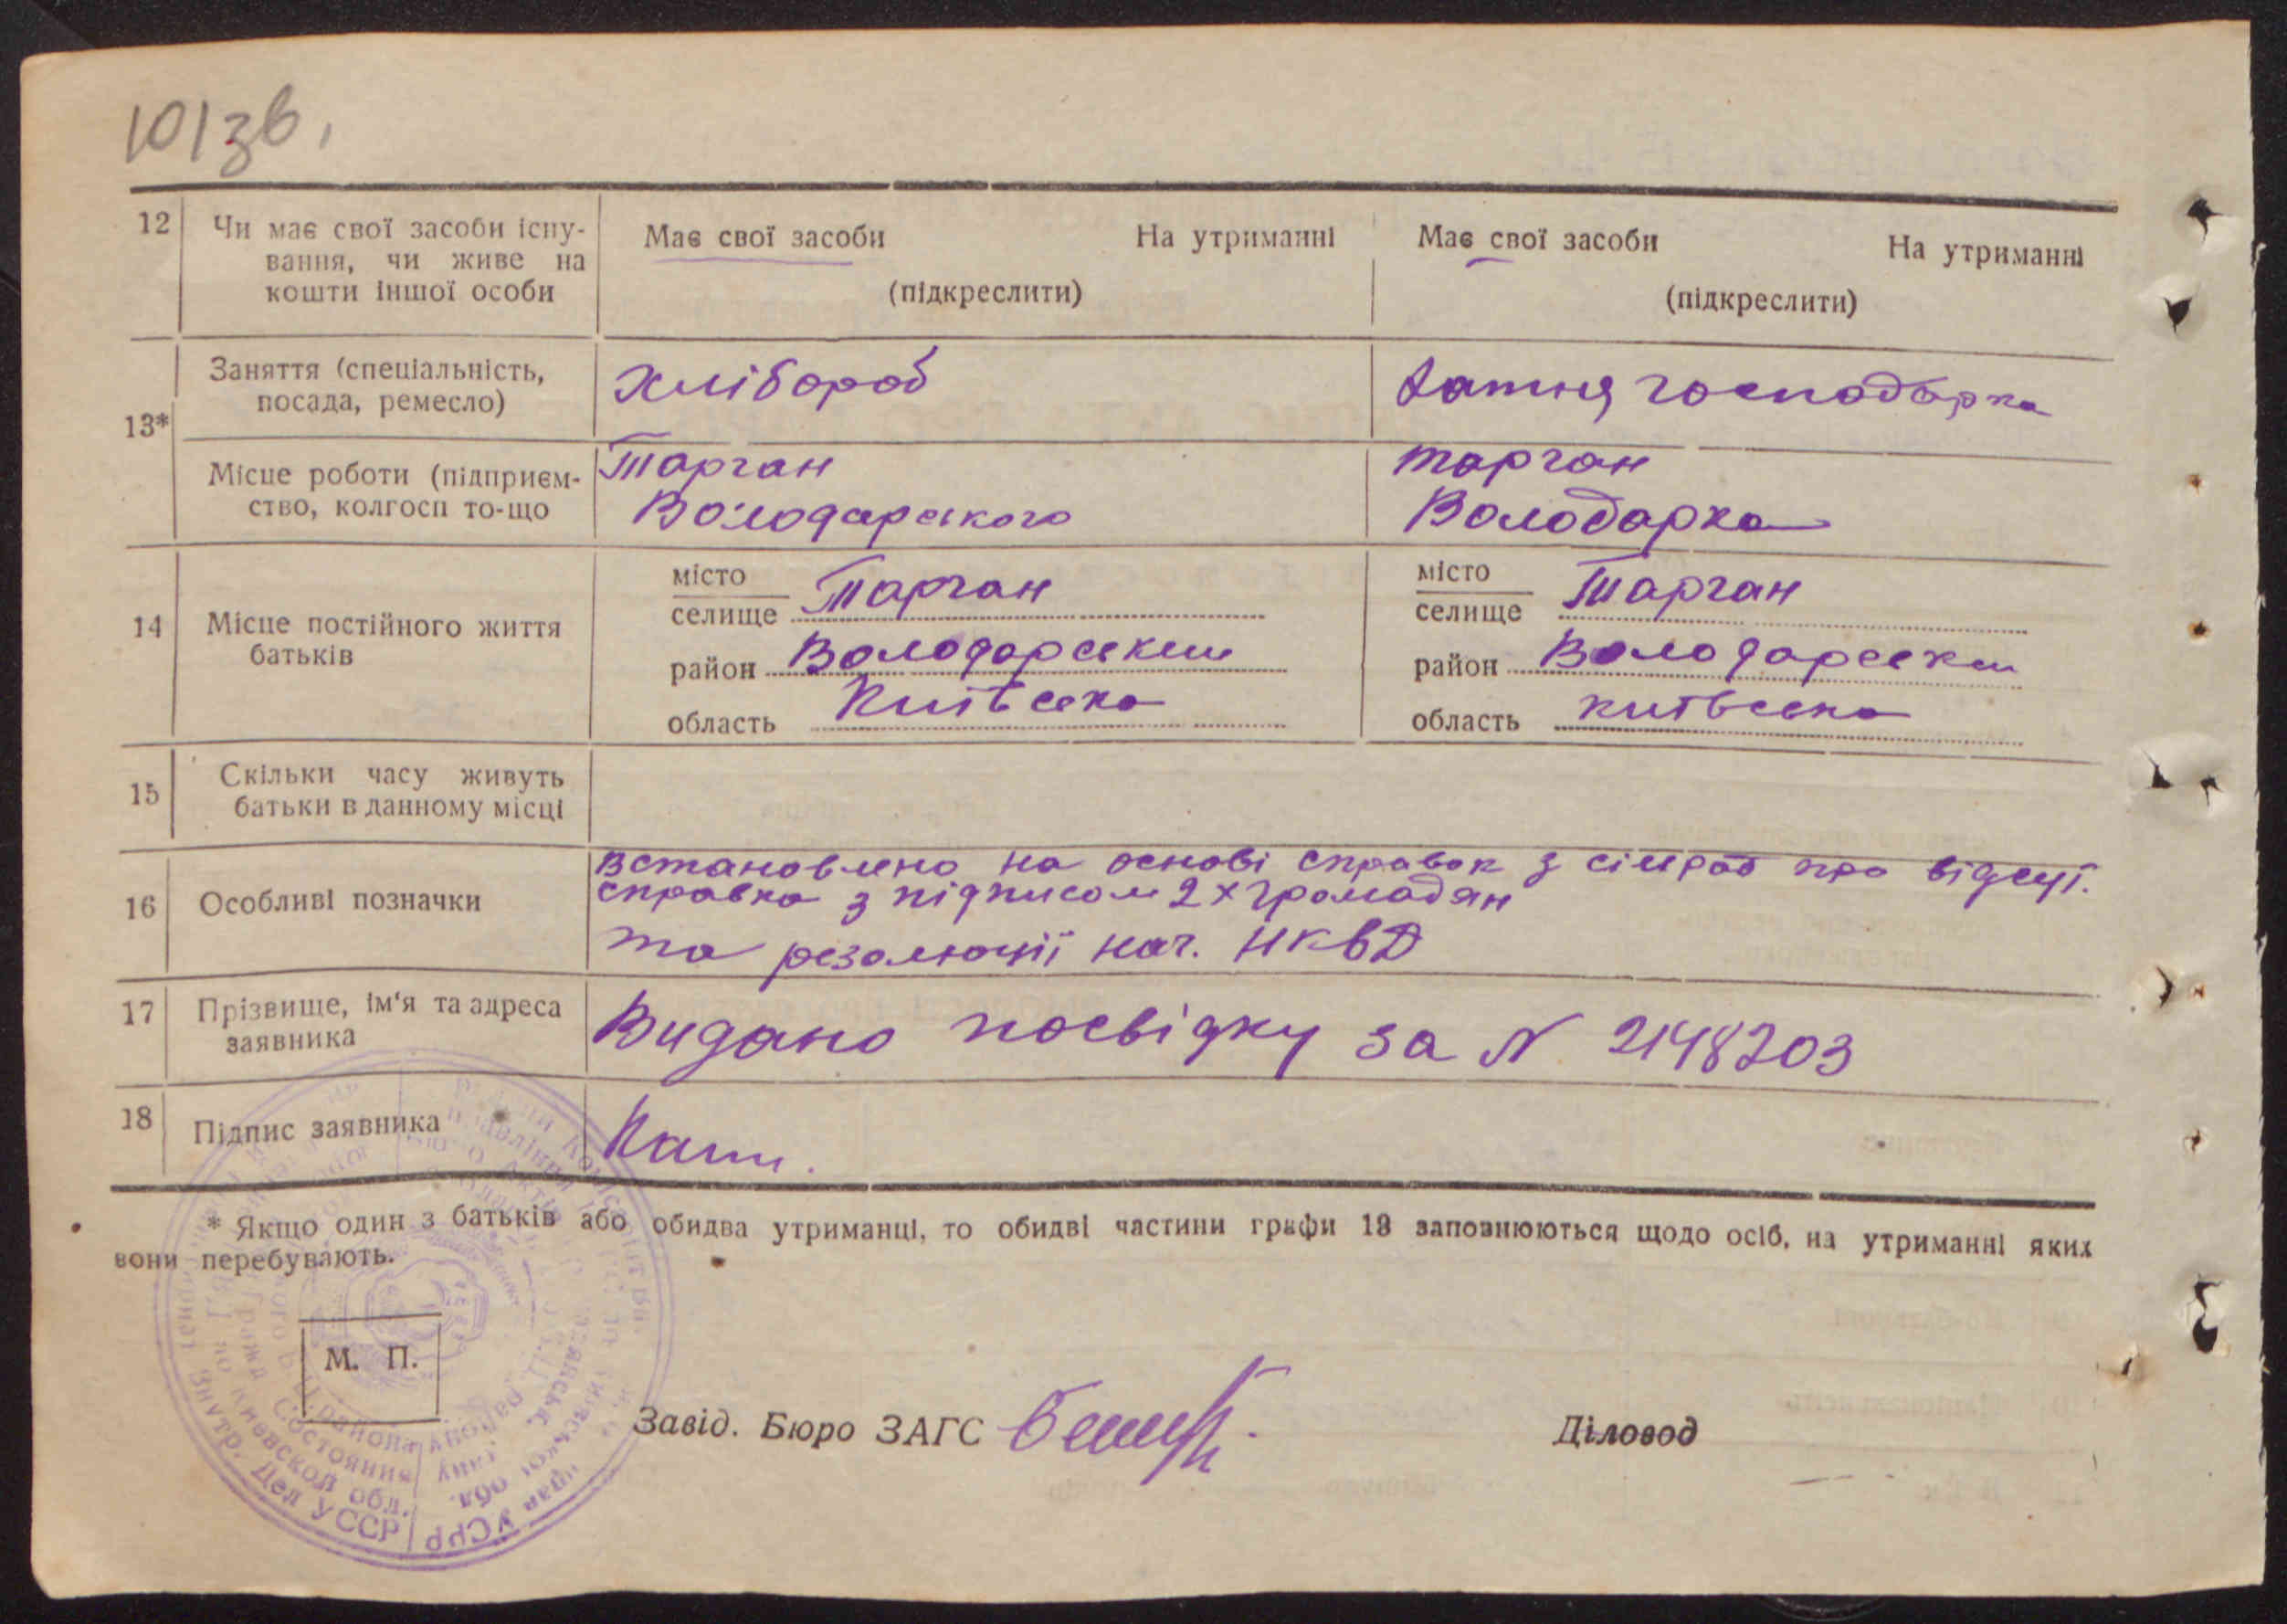 101зв.
12 Чи має свої засоби існу- Має свої засоби На утриманні Має свої засоби На утриманні
вання, чи живе на
кошти іншої особи (підкреслити) (підкреслити)
13* Заняття (спеціальність, Хлібороб хатня господарка
посада, ремесло)
Місце роботи (підприєм- Тарган тарган
ство, колгосп то-що Володарського Володарка
14 Місце постійного життя
батьків
місто
селище Тарган
район Володарський
область Київсска
місто
селище Тарган
район Володарски
область київсска
15 Скільки часу живуть
батьки в данному місці
16 Особливі позначки
Встановлено на основі справок з сілрад про відсуі.
справка з підписом 2х громадян
та резолюції нач. НКВД
17 Прізвище, ім'я та адреса
заявника
Видано посвідку за N 2148203
18 Підпис заявника
* Якщо один з батьків або обидва утриманці, то обидві частини графи 13 заповнюються щодо осіб, на утриманні яких
вони перебувають.
М. П.
Завід. Бюро ЗАГС
Діловод
района
Состояния
Киевской обл.
Внутр. Дел УССР
УСРР